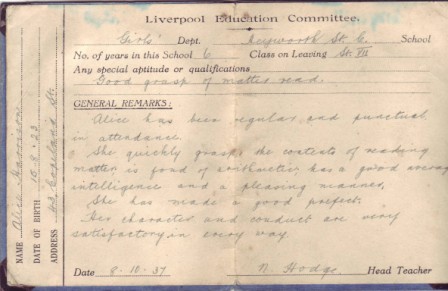 Liverpool Education Committee.
Girls' Dept. Heyworth St. C. School
No. of years in this School 6 Class on Leaving St. VII
Any special aptitude or qualifications
Good grasp of matter read.
GENERAL REMARKS:
Alice has been regular and punctual
in attendance.
She quickly grasps the contents of reading
matter, is fond of arithmetic, has a good average
intelligence and a pleasing manner.
She has made a good prefect.
Her character and conduct are very
satisfactory in every way.
Date 8.10.37 N. Hodge Head Teacher
NAME Alice Harrison
DATE OF BIRTH 10.8.23
ADDRESS 43 Copeland St.